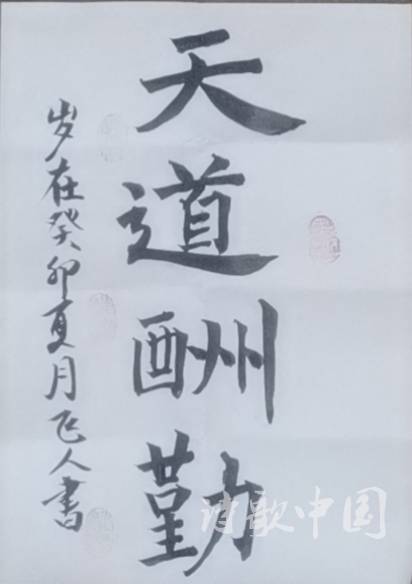 天道酬勤
岁在癸卯夏月飞人書
诗歌中国